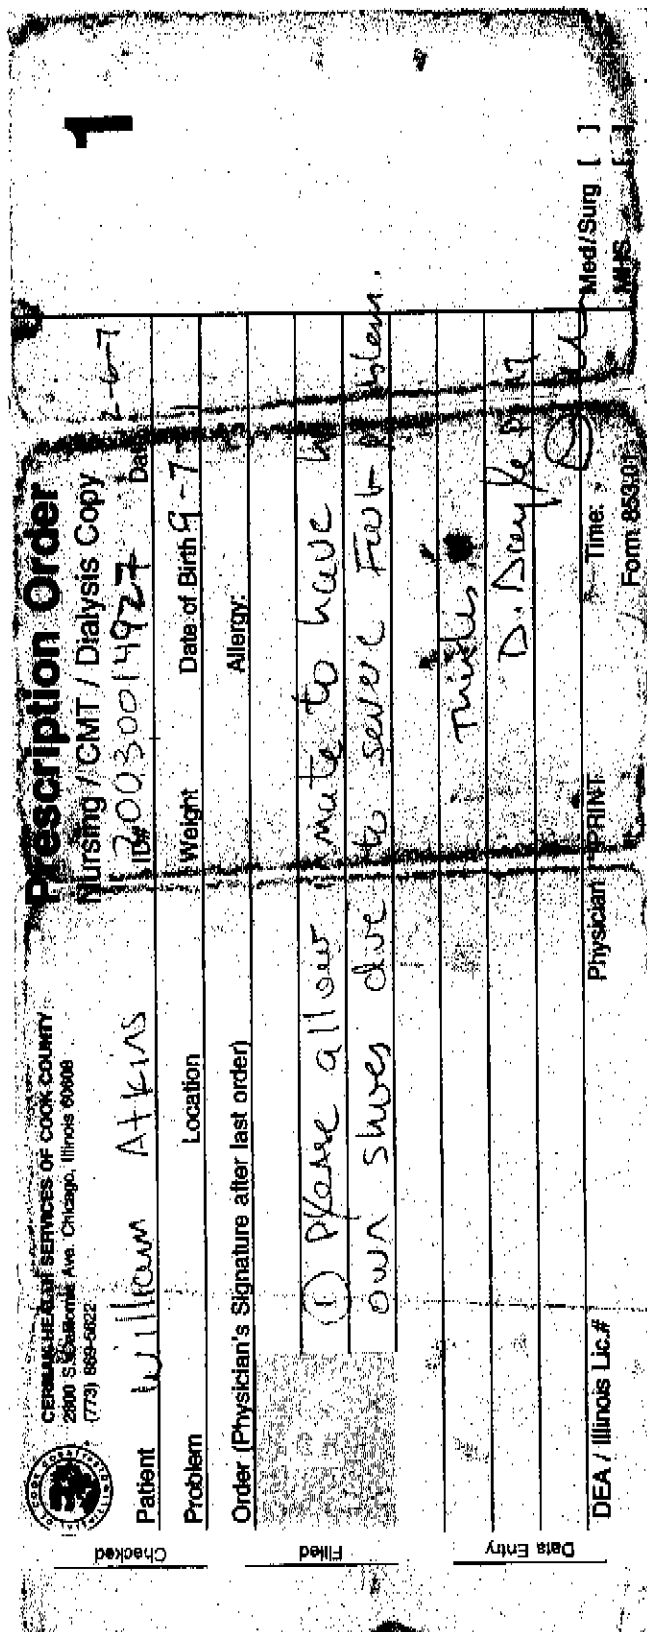 CERMAK HEALTH SERVICES OF COOK COUNTY
2800 S. California Ave. Chicago, Illinois 60608
(773) 869-5622
Prescription Order
Nursing / CMT / Dialysis Copy
1
Patient William Atkins ID# 20030014927 Date 2-6-7
Problem Location Weight Date of Birth 9-7
Order (Physician's Signature after last order) Allergy:
① Please allow inmate to have
own shoes due to severe Foot
Thanks
D.
DEA / Illinois Lic.# Physician PRINT Time: Med/Surg [ ]
Form 853.01 MHS [ ]
Checked
Filled
Data Entry